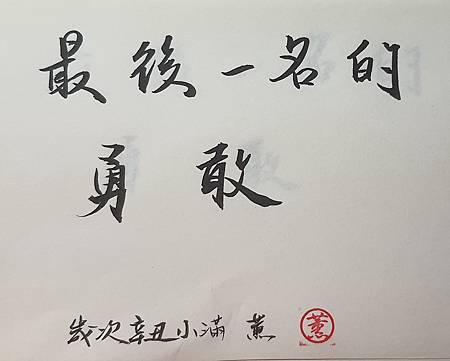 最後一名的
勇敢
歲次辛丑小滿 薫 薫